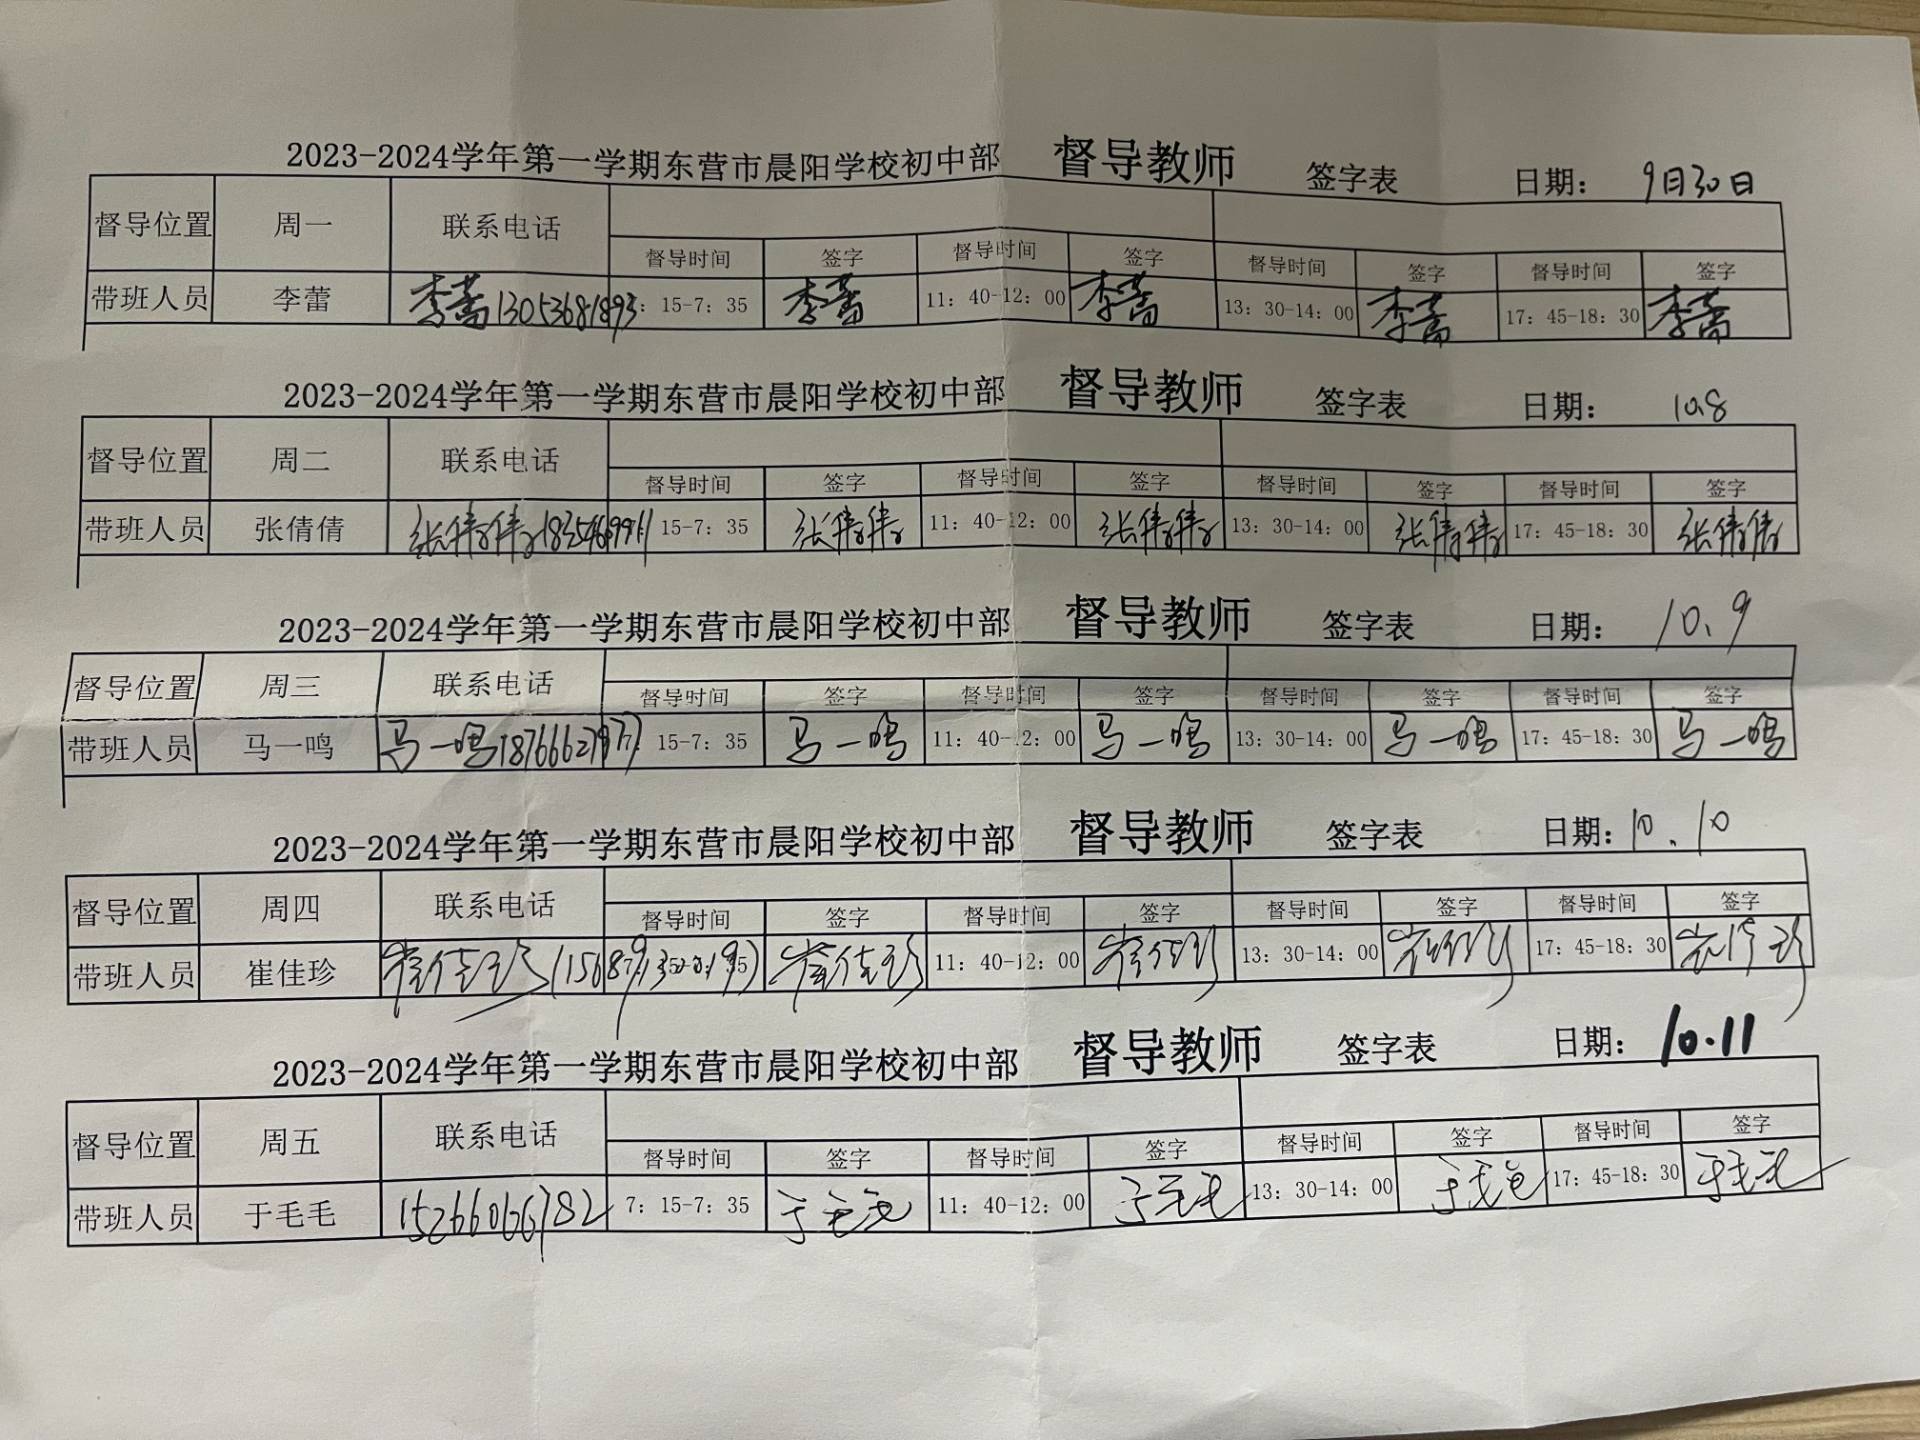 2023-2024学年第一学期东营市晨阳学校初中部 督导教师 签字表 日期： 9月30日
督导位置 周一 联系电话
督导时间 签字 督导时间 签字 督导时间 签字 督导时间 签字
带班人员 李蕾 李蕾13053681893 : 15-7: 35 李蕾 11: 40-12: 00 李蕾 13: 30-14: 00 李蕾 17: 45-18: 30 李蕾
2023-2024学年第一学期东营市晨阳学校初中部 督导教师 签字表 日期： 10.8
督导位置 周二 联系电话
督导时间 签字 督导时间 签字 督导时间 签字 督导时间 签字
带班人员 张倩倩 张倩倩 15-7: 35 张倩倩 11: 40-12: 00 张倩倩 13: 30-14: 00 张倩倩 17: 45-18: 30 张倩倩
2023-2024学年第一学期东营市晨阳学校初中部 督导教师 签字表 日期： 10.9
督导位置 周三 联系电话
督导时间 签字 督导时间 签字 督导时间 签字 督导时间 签字
带班人员 马一鸣 马一鸣 15-7: 35 马一鸣 11: 40-12: 00 马一鸣 13: 30-14: 00 马一鸣 17: 45-18: 30 马一鸣
2023-2024学年第一学期东营市晨阳学校初中部 督导教师 签字表 日期： 10.10
督导位置 周四 联系电话
督导时间 签字 督导时间 签字 督导时间 签字 督导时间 签字
带班人员 崔佳珍 崔佳珍 崔佳珍 11: 40-12: 00 崔佳珍 13: 30-14: 00 崔佳珍 17: 45-18: 30 崔佳珍
2023-2024学年第一学期东营市晨阳学校初中部 督导教师 签字表 日期： 10.11
督导位置 周五 联系电话
督导时间 签字 督导时间 签字 督导时间 签字 督导时间 签字
带班人员 于毛毛 7: 15-7: 35 于毛毛 11: 40-12: 00 于毛毛 13: 30-14: 00 于毛毛 17: 45-18: 30 于毛毛